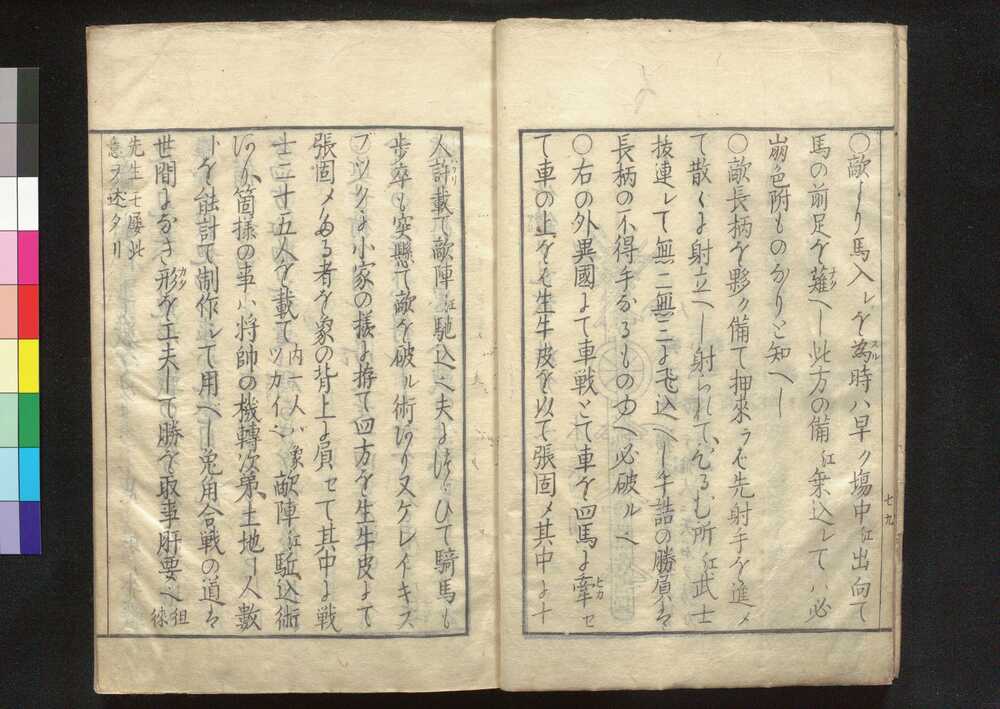 ○敵より馬入レを為時ハ早ク塲中江出向て
馬の前足を薙へし此方の備江乗込レてハ必
崩色附ものなりと知へし
○敵長柄を夥ク備て押來ラバ先射手を進メ
て散〻に射立へし射られて、ひるむ所江武士
抜連レて無二無三に飛込へし手詰の勝負は
長柄の不得手なるものゆへ必破ルへ
○右の外異國にて車戦とて車を四馬に牽セ
て車の上をも生牛皮を以て張固メ其中に十
七九
人計載て敵陣江馳込へ夫に續ひて騎馬も
歩卒も突懸て敵を破ル術あり又ゲレイキス
ブツクに小家の様に拵て四方を生牛皮にて
張固メたる者を象の背上に負せて其中に戦
士二十五人を載て内一人ハ象ツカイ也敵陣江駈込術
あり箇様の事ハ将帥の機轉次第、土地ト人数
トを能計て制作して用へし兎角合戦の道は
世間になき形を工夫して勝を取事肝要也徂徠
先生モ屡此
意ヲ述タリ